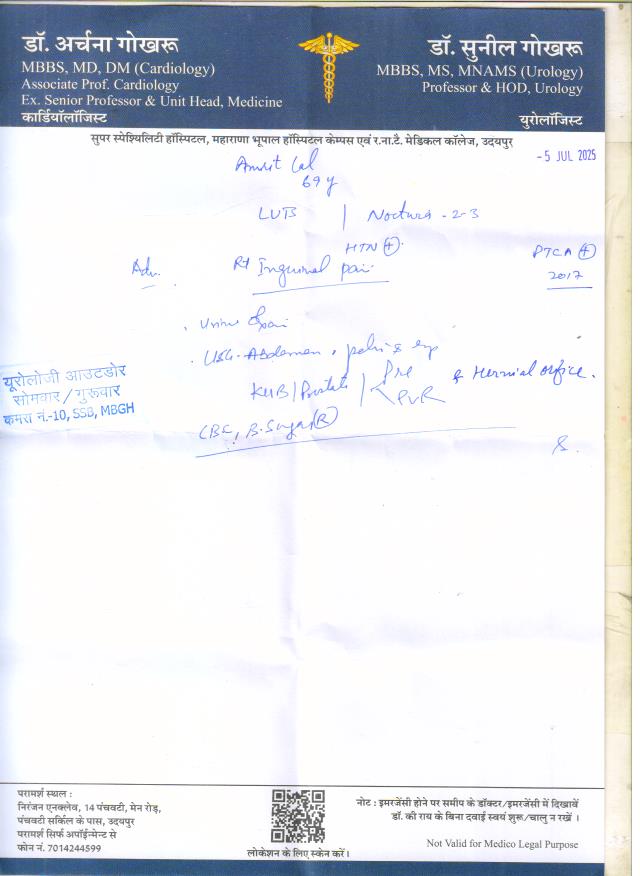 डॉ. अर्चना गोखरू
MBBS, MD, DM (Cardiology)
Associate Prof. Cardiology
Ex. Senior Professor & Unit Head, Medicine
कार्डियॉलॉजिस्ट
डॉ. सुनील गोखरू
MBBS, MS, MNAMS (Urology)
Professor & HOD, Urology
युरोलॉजिस्ट
सुपर स्पेश्यिलिटी हॉस्पिटल, महाराणा भूपाल हॉस्पिटल केम्पस एवं र.ना.टै. मेडिकल कॉलेज, उदयपुर
-5 JUL 2025
Amrit Lal
69 y
LUTS | Nocturia - 2-3
HTN (+)
PTCA (+)
2017
Adv.
Rt Inguinal pain
Urine
USG - Abdomen, pelvis
KUB / Prostate / Pre & Hernial orifice.
PVR
CBC, B. Sugar (R)
यूरोलोजी आउटडोर
सोमवार / गुरूवार
कमरा नं.-10, SSB, MBGH
परामर्श स्थल :
निरंजन एनक्लेव, 14 पंचवटी, मेन रोड़,
पंचवटी सर्किल के पास, उदयपुर
परामर्श सिर्फ अपॉईन्मेन्ट से
फोन नं. 7014244599
लोकेशन के लिए स्केन करें।
नोट : इमरजेंसी होने पर समीप के डॉक्टर/इमरजेंसी में दिखावें
डॉ. की राय के बिना दवाई स्वयं शुरू/चालु न रखें ।
Not Valid for Medico Legal Purpose